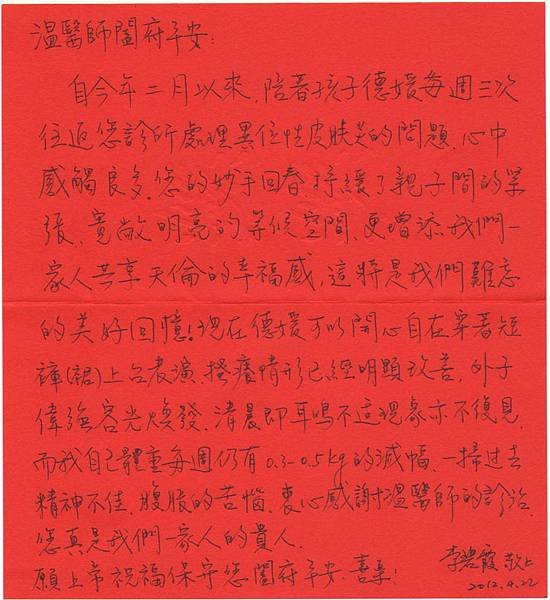 溫醫師闔府平安:
自今年二月以來,陪著孩子德媛每週三次
往返您診所處理異位性皮膚炎的問題,心中
感觸良多。您的妙手回春抒緩了親子間的緊
張,寬敞明亮的等候空間,更增添我們一
家人共享天倫的幸福感,這將是我們難忘
的美好回憶!現在德媛可以開心自在穿著短
褲(裙)上台表演,搔癢情形已經明顯改善,外子
偉強容光煥發,清晨即耳鳴不適現象亦不復見,
而我自己體重每週仍有0.3-0.5kg的減幅,一掃過去
精神不佳,腹脹的苦惱,衷心感謝溫醫師的診治,
您真是我們一家人的貴人.
願上帝祝福保守您闔府平安、喜樂!
李碧霞 敬上
2012.4.22